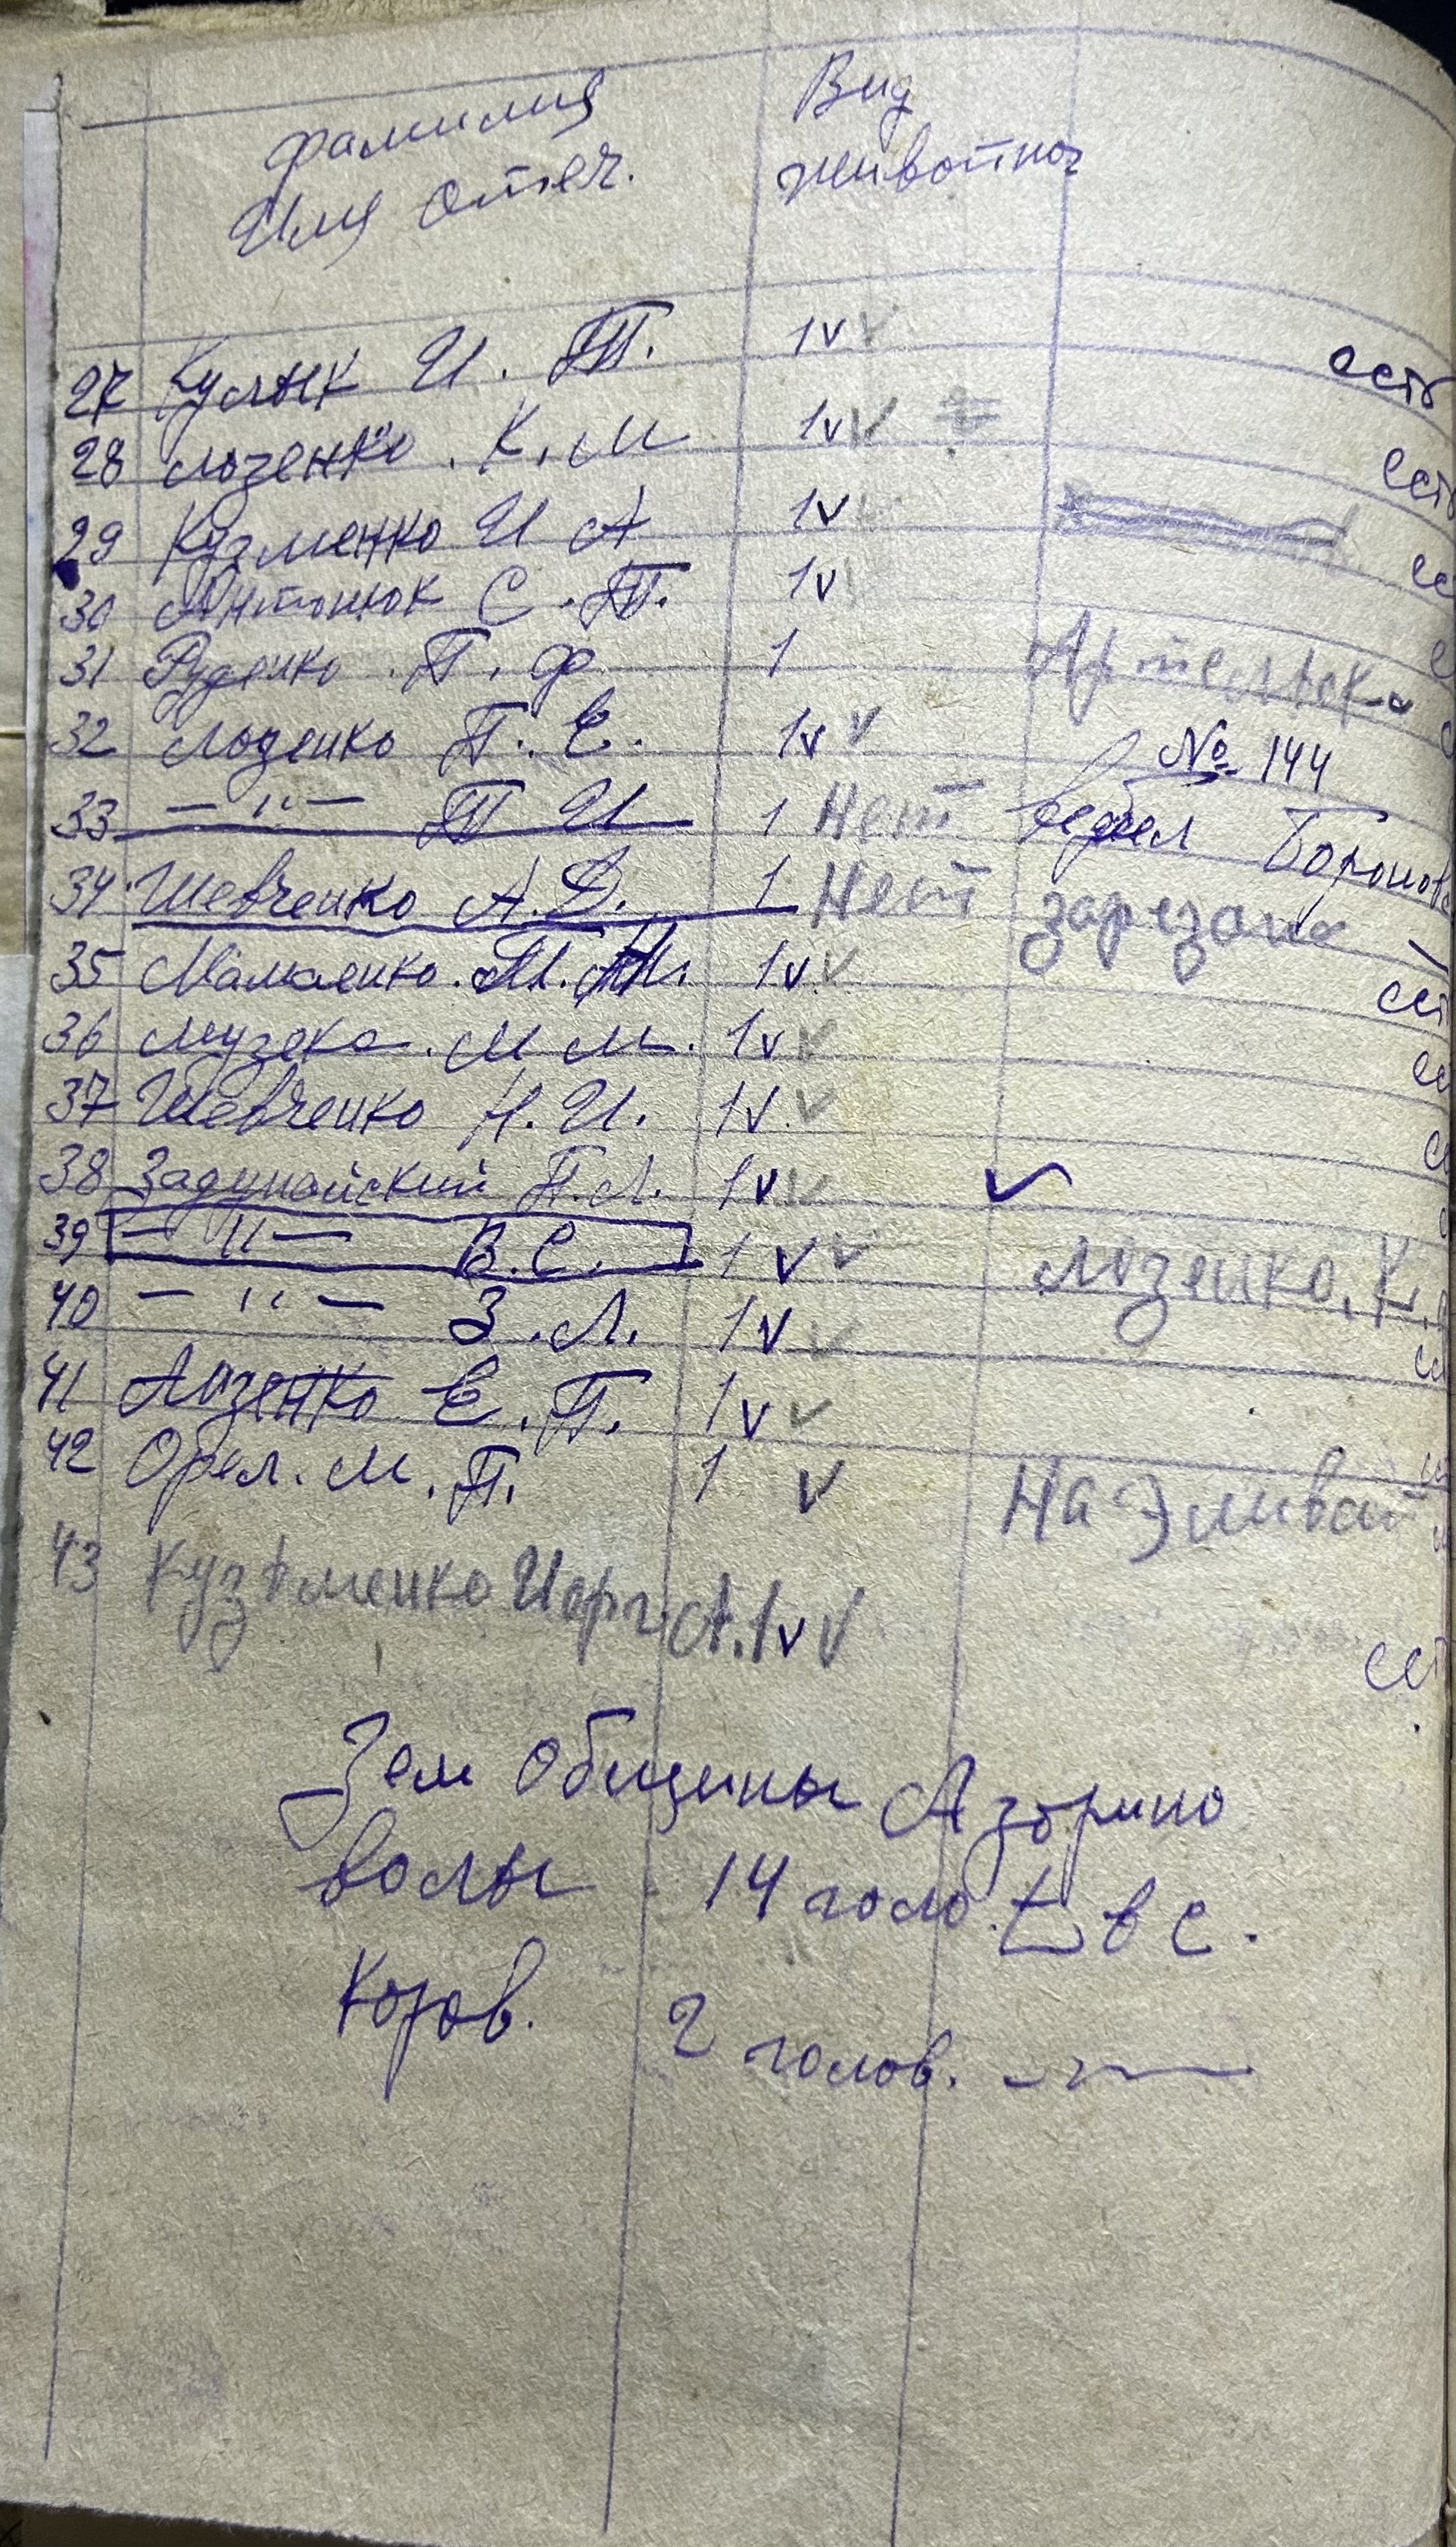 фамилия Вид
Имя отеч. животног
27 Кулык И. П. 1 v v есть
28 Лозенко. К. М 1 v v есть
29 Кузменко И А 1 v v ес
30 Антонюк С. П. 1 v
31 Руденко. П. Ф 1 Артелька
32 Лозенко П. Е. 1 v v № 144
33 — " — П И 1 Нет Боронов
34 Шевченко А. Д. 1 Нет зарезана
35 Мамаенко. 1 v v ест
36 Музека. М М. 1 v v ес
37 Шевченко Н. И. 1 v v е
38 Задунайский П. Л. 1 v v v
39 — " — В. С. 1 v v Лозенко. К.
40 — " — З. Л. 1 v v
41 Лозенко Е. П. 1 v v
42 Орел. М. П. 1 v На
43 Кузьменко А. 1 v v ест
Зем Общины
волы 14 голо. в с.
Коров. 2 голов. —"—